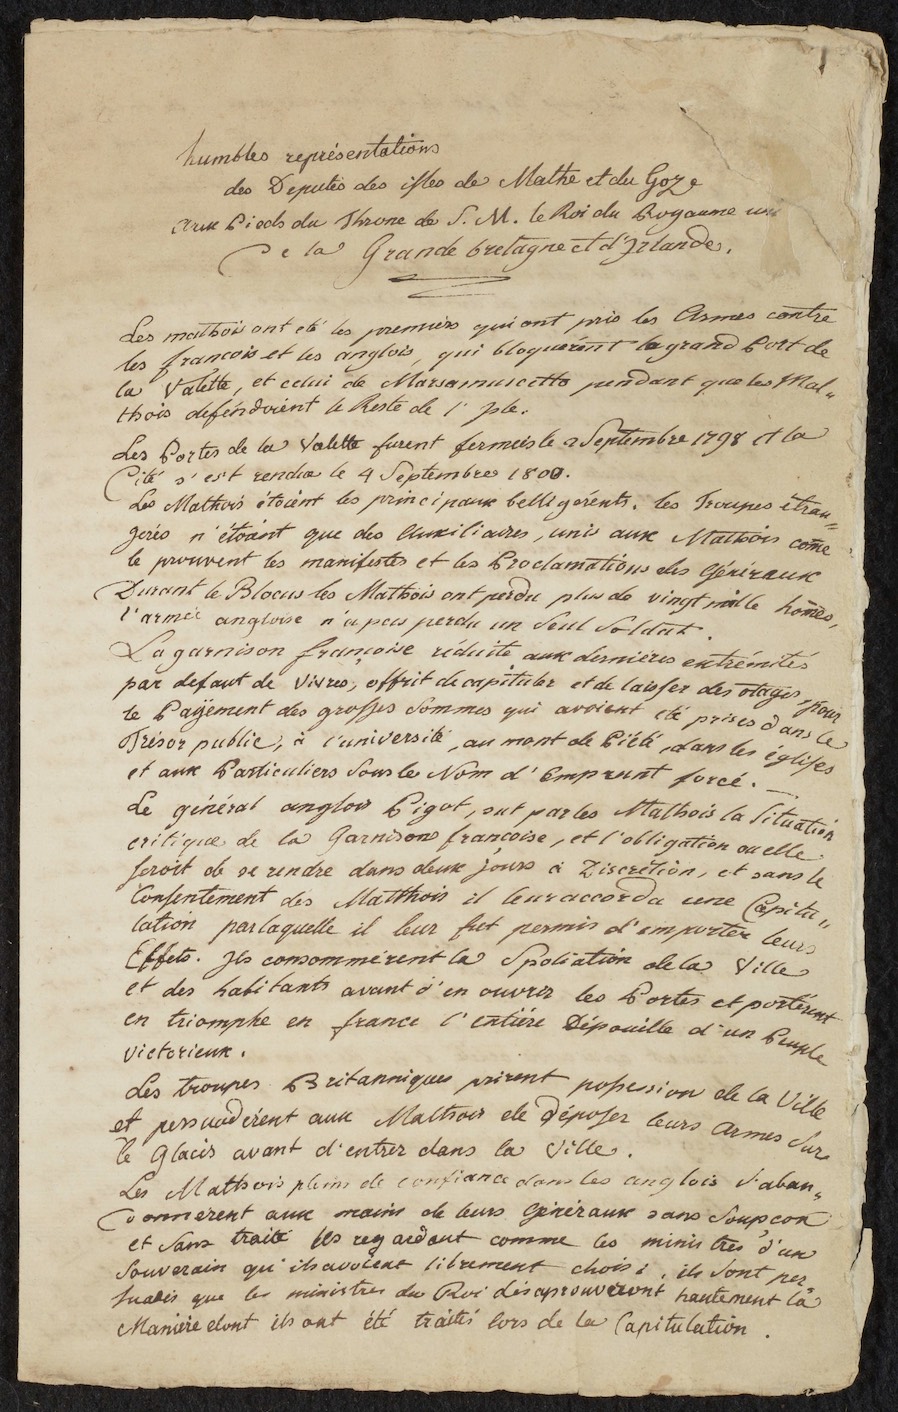 humbles représentations
des Deputés des isles de Malthe et du Goze
aux Pieds du Throne de S. M. le Roi du Royaume uni
De la Grande bretagne et d'Irlande.
Les malthois ont eté les premiers qui ont pris les Armes contre
les françois et les anglois, qui bloquérent le grand Port de
la Valette, et celui de Marsamuscetto pendant que les Mal„
thois deféndoient le Reste de l'Isle.
Les Portes de la Valette furent fermées le 2 Septembre 1798 et la
Cité s'est rendue le 4 Septembre 1800.
Les Malthois étoient les principaux belligérents. les Troupes étran„
gerés n'étoient que des Auxiliaires, unis aux Malthois come
le prouvent les manifestes et les Proclamations des Généraux
Durant le Blocus les Malthois ont perdu plus de vingt mille homes,
l'armée angloise n'a pas perdu un Seul Soldat.
La garnison françoise réduite aux dernières extrémités
par defaut de vivres, offrit de capituler et de laisser des otages, pour
le Payement des grosses Sommes qui avoient eté prises dans le
Trésor public, à l'université, au mont de Piété, dans les églises
et aux Particuliers Sous le Nom d'Emprunt forcé.
Le général anglois Pigot, sut par les Malthois la Situation
critique de la Garnison francoise, et l'obligation ou elle
seroit de se rendre dans deux jours à Discrétion, et sans le
Consentement des Malthois il leur accorda une Capitu„
lation par laquelle il leur fut permis d'emporter leurs
Effets. Ils consommérent la Spoliation de la Ville
et des habitants avant d'en ouvrir les Portes et portérent
en triomphe en france l'entiére Dépouille d'un Peuple
victorieux.
Les troupes Britanniques prirent possession de la Ville
et persuadérent aux Malthois de déposer leurs Armes Sur
le Glacis avant d'entrer dans la Ville.
Les Malthois pleins de confiance dans les anglois s'aban„
Donnerent aux mains de leurs Généraux sans Soupcon
et Sans traité les regardant comme les ministres d'un
Souverain qu'ils avoient librement choisi, ils Sont per„
suadés que les ministres du Roi désaprouveront hautement la
Maniere dont ils ont été traités lors de la Capitulation.